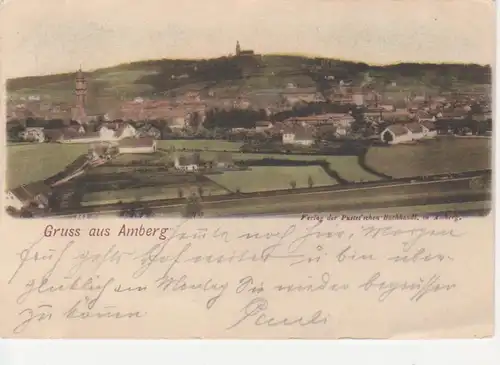 Verlag der Pustet'schen Buchhandl. in Amberg.
Gruss aus Amberg. Heute noch hier, Morgen
früh geht's Hof weiter u bin über-
glücklich am Montag Sie wieder begrüßen
zu können. Pauli